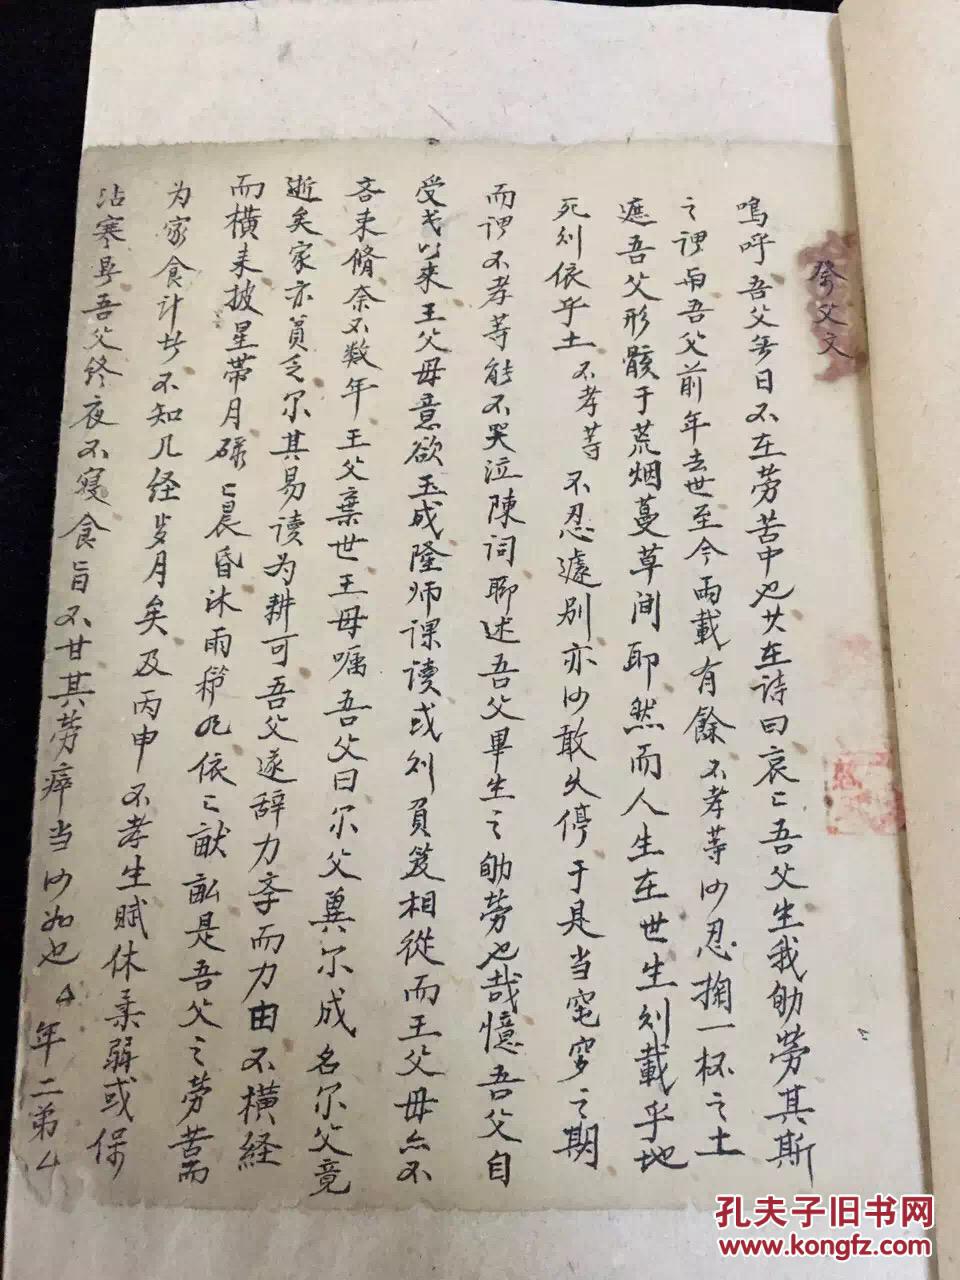 祭父文
嗚呼吾父無日不在劳苦中也 在诗曰哀〻吾父生我劬劳其斯
之謂与吾父前年去世至今兩載有餘不孝等何忍掬一杯之土
遮吾父形骸于荒烟蔓草间耶然而人生在世生则載乎地
死则依乎土不孝等不忍遽别亦何敢久停于是当窀穸之期
而谓不孝等能不哭泣陳词聊述吾父畢生之劬劳也哉憶吾父自
受 以来王父母意欲玉成隆师课读或则負笈相從而王父母亦不
吝束脩奈不数年王父棄世王母嘱吾父曰尔父冀尔成名尔父竟
逝矣家亦貧乏尔其易读为耕可吾父遂辞力 而力田不横経
而横耒披星带月碌〻晨昏沐雨 依〻畎畝是吾父之劳苦而
为家食计者不知几经岁月矣及丙申不孝生赋体柔弱或保
沾寒 吾父终夜不寝食旨不甘其劳瘁当何如也 年二弟
孔夫子旧书网
www.kongfz.com